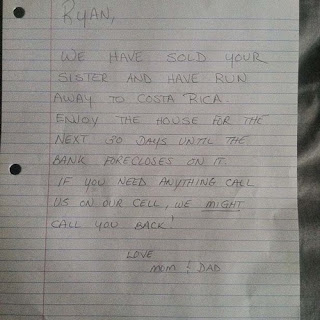 RYAN,
WE HAVE SOLD YOUR
SISTER AND HAVE RUN
AWAY TO COSTA RICA.
ENJOY THE HOUSE FOR THE
NEXT 30 DAYS UNTIL THE
BANK FORECLOSES ON IT.
IF YOU NEED ANYTHING CALL
US ON OUR CELL, WE MIGHT
CALL YOU BACK!
LOVE
MOM & DAD